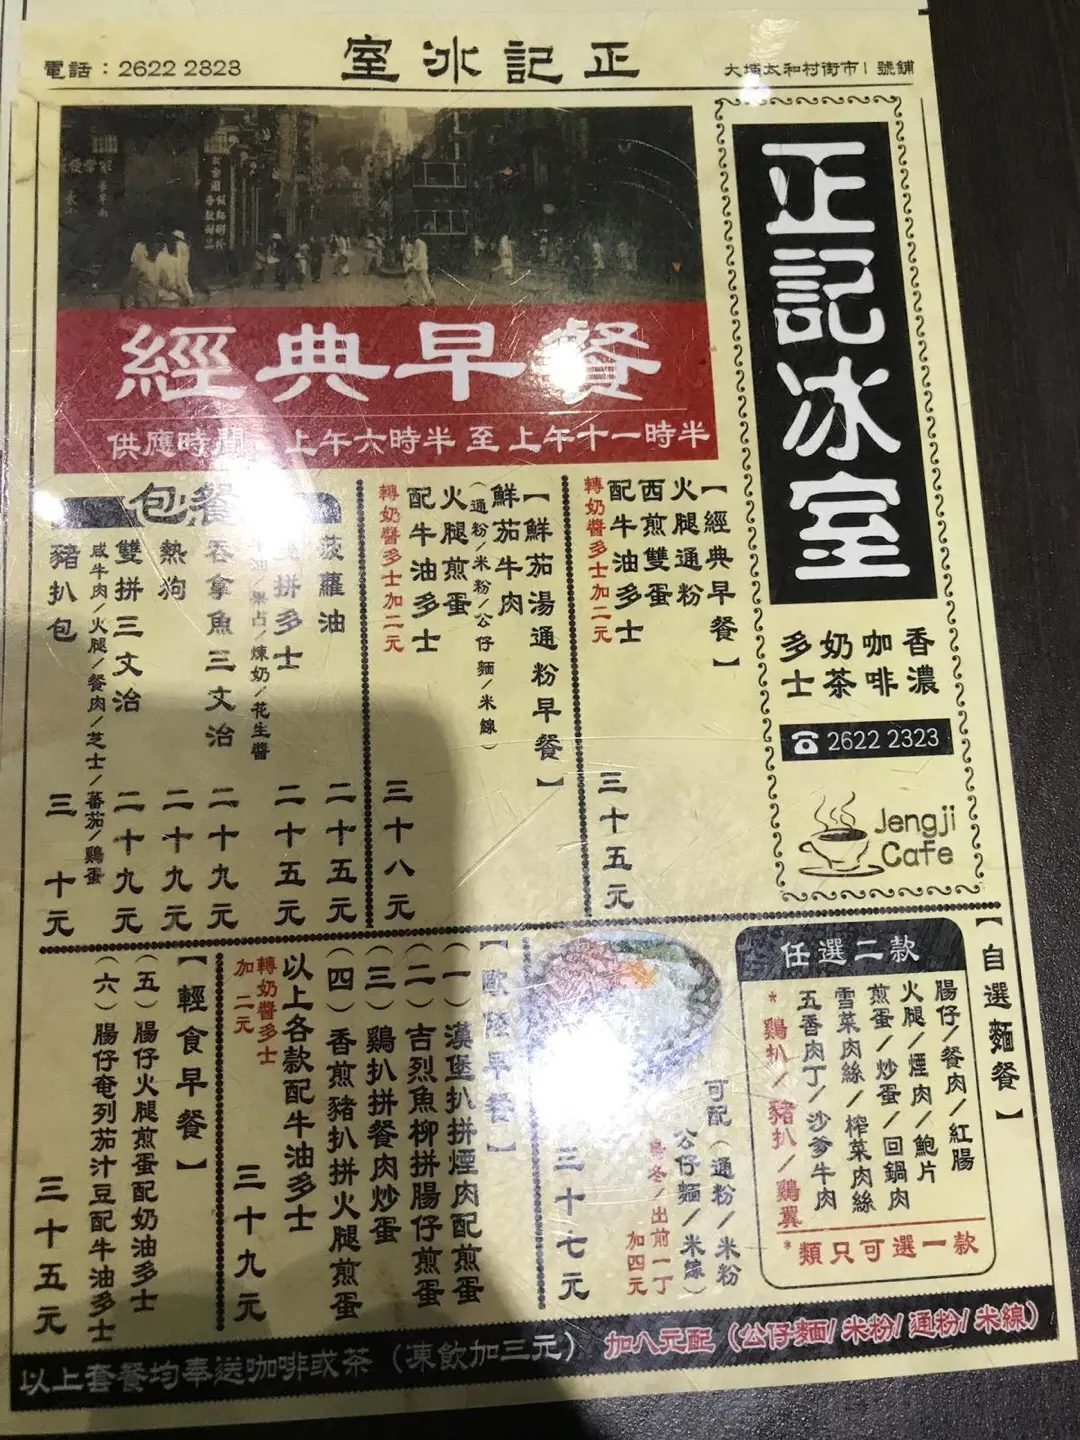 正記冰室
電話：2622 2323
大埔太和村街市1號鋪
正記冰室
香濃
咖啡
奶茶
多士
☎2622 2323
Jengji
Cafe
經典早餐
供應時間
上午六時半 至 上午十一時半
【經典早餐】
火腿通粉
西煎雙蛋
配牛油多士
轉奶醬多士加二元
三十五元
【鮮茄湯通粉早餐】
鮮茄牛肉
（通粉/米粉/公仔麵/米線）
火腿煎蛋
配牛油多士
轉奶醬多士加二元
三十八元
包餐
菠蘿油
二十五元
拼多士
油/果占/煉奶/花生醬
二十五元
吞拿魚三文治
二十九元
熱狗
二十九元
雙拼三文治
二十九元
咸牛肉/火腿/餐肉/芝士/蕃茄/鷄蛋
豬扒包
三十元
【自選麵餐】
任選二款
腸仔/餐肉/紅腸
火腿/煙肉/鮑片
煎蛋/炒蛋/回鍋肉
雪菜肉絲/榨菜肉絲
五香肉丁/沙爹牛肉
*鷄扒/豬扒/鷄翼
*類只可選一款
可配（通粉/米粉
公仔麵/米線）
出前一丁
加四元
三十七元
早餐】
（一）漢堡扒拼煙肉配煎蛋
（二）吉烈魚柳拼腸仔煎蛋
（三）鷄扒拼餐肉炒蛋
（四）香煎豬扒拼火腿煎蛋
以上各款配牛油多士
轉奶醬多士
加二元
三十九元
【輕食早餐】
（五）腸仔火腿煎蛋配奶油多士
（六）腸仔奄列茄汁豆配牛油多士
三十五元
以上套餐均奉送咖啡或茶（凍飲加三元） 加八元配（公仔麵/米粉/通粉/米線）